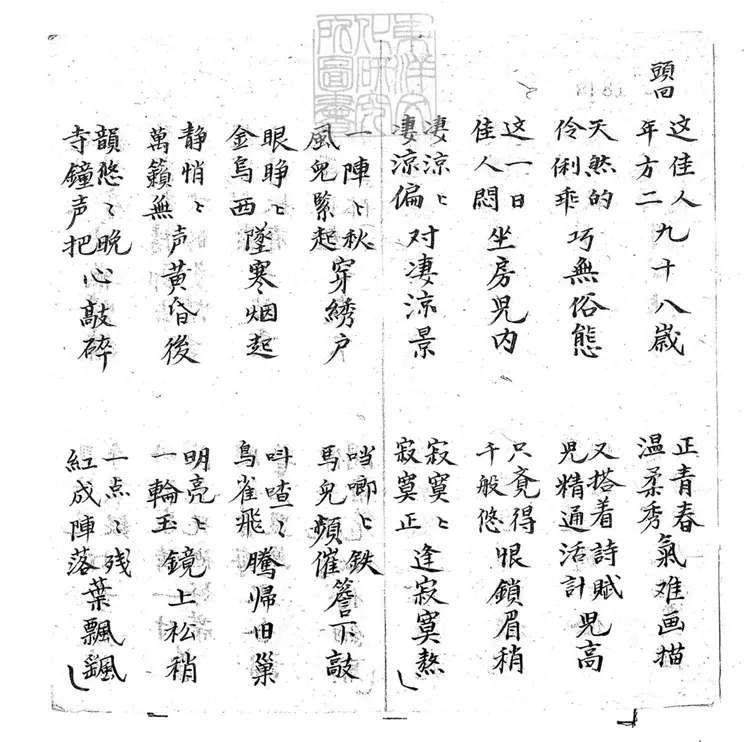 頭囬
这佳人年方二九十八歲
正青春温柔秀氣难画描
天然的伶俐乖巧無俗態
又搭着詩賦児精通活計児高
这一日佳人悶坐房児内
只覔得千般悠恨鎖眉稍
凄涼〻凄涼偏对凄涼景
寂寞〻寂寞正逢寂寞熬
一陣〻秋風児緊起穿綉户
咭啷〻鉄馬児頻催簷下敲
眼睁〻金烏西墜寒烟起
叫喳〻鳥雀飛騰歸旧巢
静悄〻萬籟無声黄昏後
明亮〻一輪玉鏡上松稍
韻悠〻晚寺鐘声把心敲碎
一点〻残紅成陣落葉飄飖
東洋文化研究所圖書